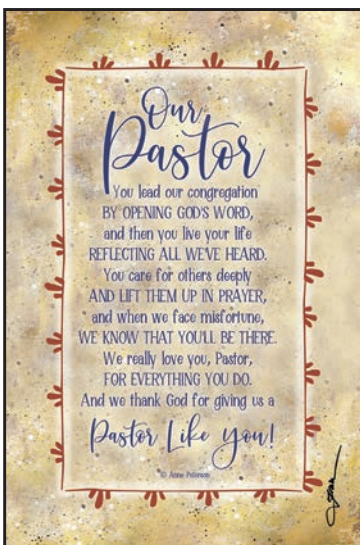 Our
Pastor
You lead our congregation
BY OPENING GOD'S WORD,
and then you live your life
REFLECTING ALL WE'VE HEARD.
You care for others deeply
AND LIFT THEM UP IN PRAYER,
and when we face misfortune,
WE KNOW THAT YOU'LL BE THERE.
We really love you, Pastor,
FOR EVERYTHING YOU DO.
And we thank God for giving us a
Pastor Like You!
© Anne Peterson